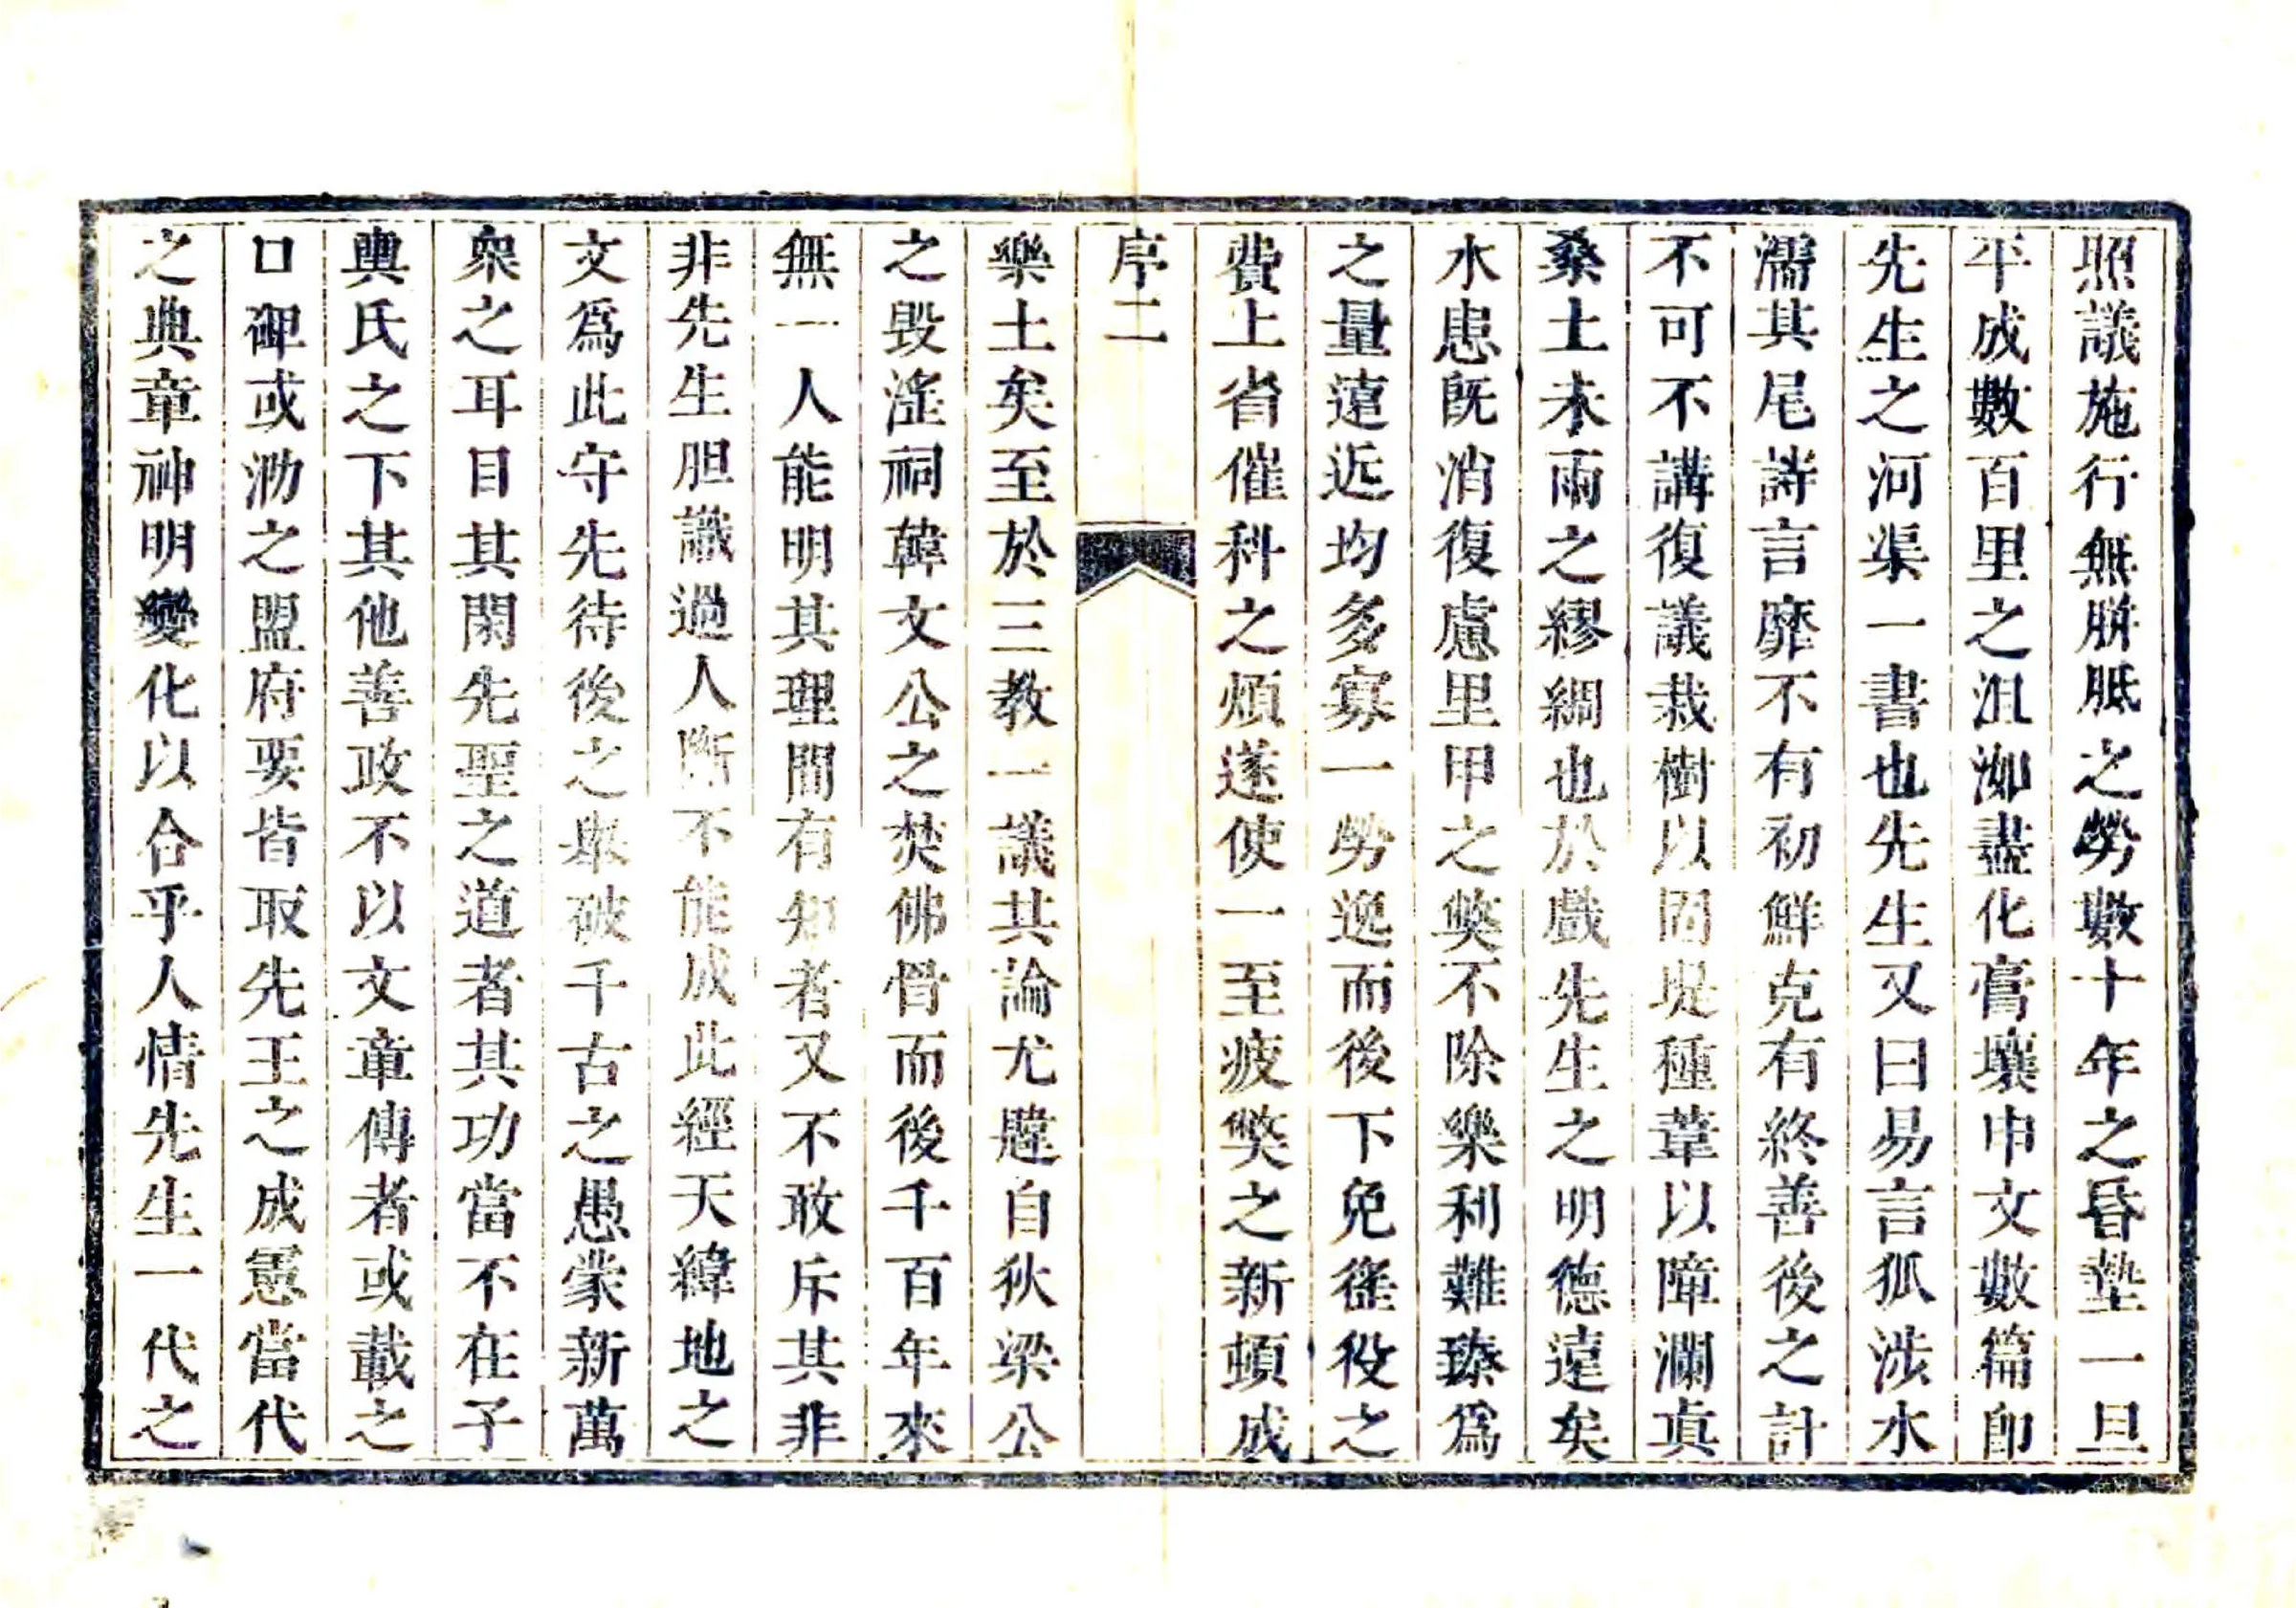 照議施行無胼胝之勞數十年之昏墊一旦
平成數百里之沮洳盡化膏壤申文數篇卽
先生之河渠一書也先生又曰易言狐涉水
濡其尾詩言靡不有初鮮克有終善後之計
不可不講復議栽樹以固堤種葦以障瀾真
桑土未雨之繆綢也於戲先生之明德遠矣
水患旣消復慮里甲之獘不除樂利難臻爲
之量遠近均多寡一勞逸而後下免徭役之
費上省催科之煩遂使一至疲獘之新頓成
序二
樂土矣至於三教一議其論尤韙自狄梁公
之毀淫祠韓文公之焚佛骨而後千百年來
無一人能明其理間有知者又不敢斥其非
非先生胆識過人斷不能成此經天緯地之
文爲此守先待後之舉破千古之愚蒙新萬
衆之耳目其閑先聖之道者其功當不在子
輿氏之下其他善政不以文章傳者或載之
口碑或泐之盟府要皆取先王之成憲當代
之典章神明變化以合乎人情先生一代之